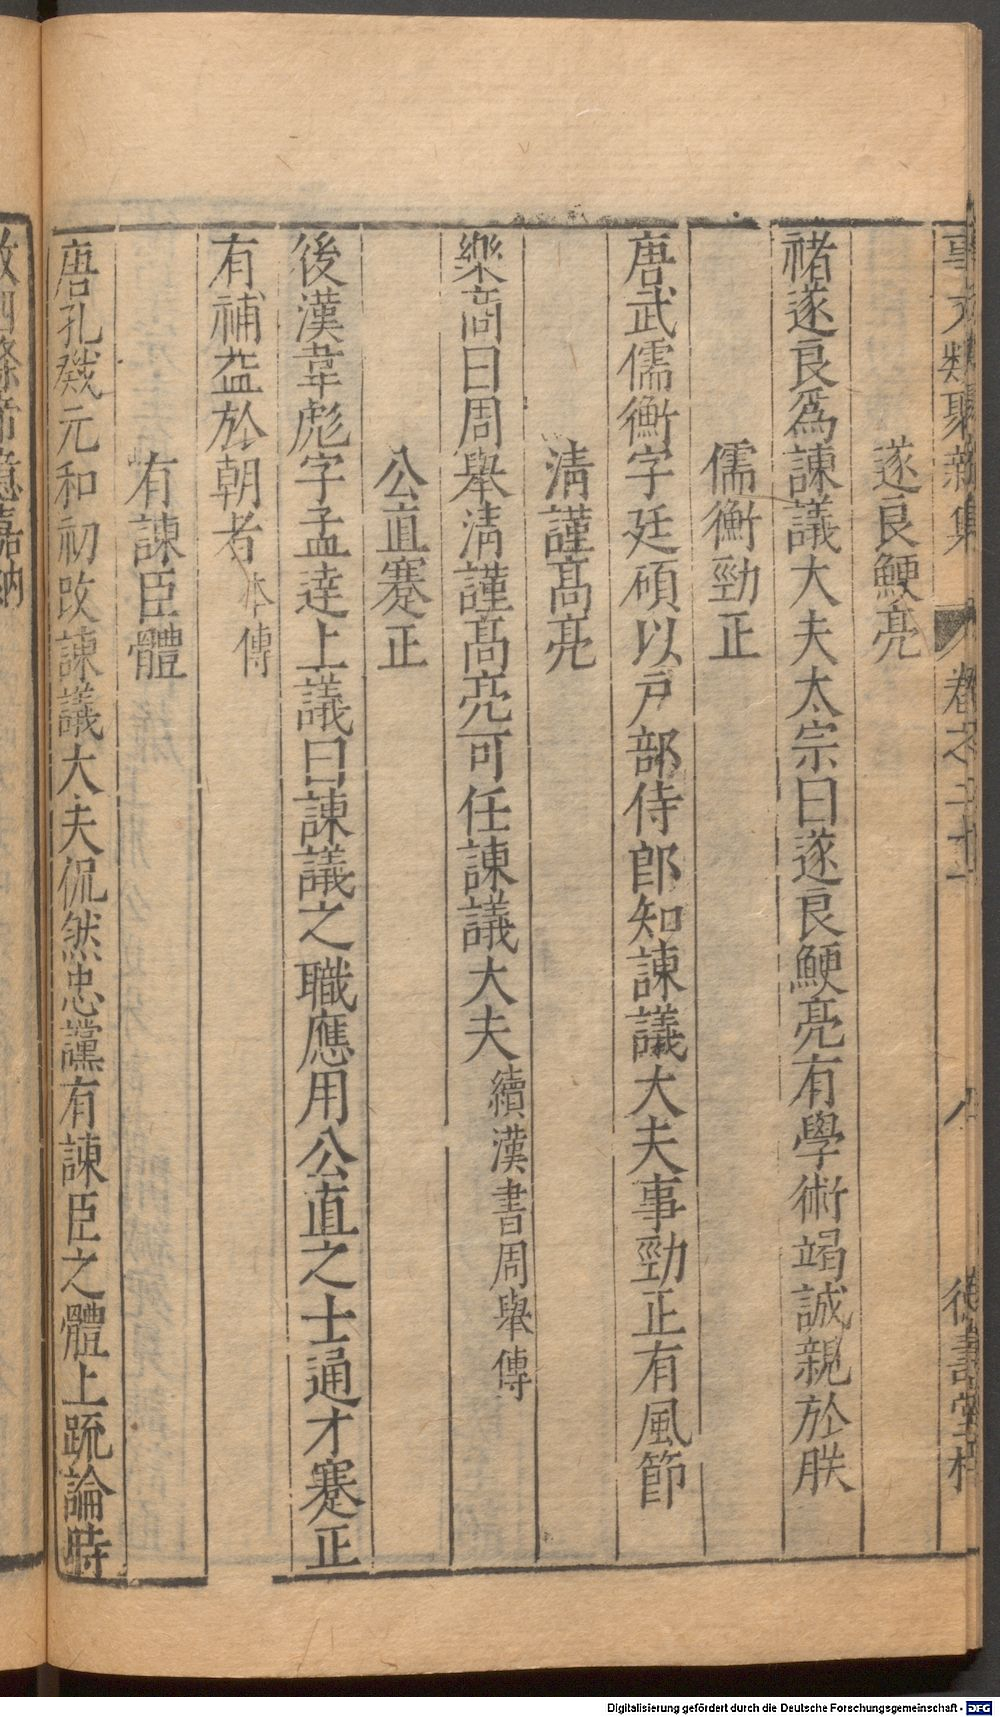 事文類聚新集 卷之二十一 八 德壽堂梓
遂良鯁亮
褚遂良爲諫議大夫太宗曰遂良鯁亮有學術竭誠親於朕
儒衡勁正
唐武儒衡字廷碩以戸部侍郎知諫議大夫事勁正有風節
淸謹髙亮
樂啇曰周舉淸謹髙亮可任諫議大夫續漢書周舉傳
公直蹇正
後漢韋彪字孟逹上議曰諫議之職應用公直之士通才蹇正
有補益於朝者本傳
有諫臣體
唐孔戣元和初改諫議大夫侃然忠讜有諫臣之體上䟽論時
政四條帝意嘉納
Digitalisierung gefördert durch die Deutsche Forschungsgemeinschaft - DFG